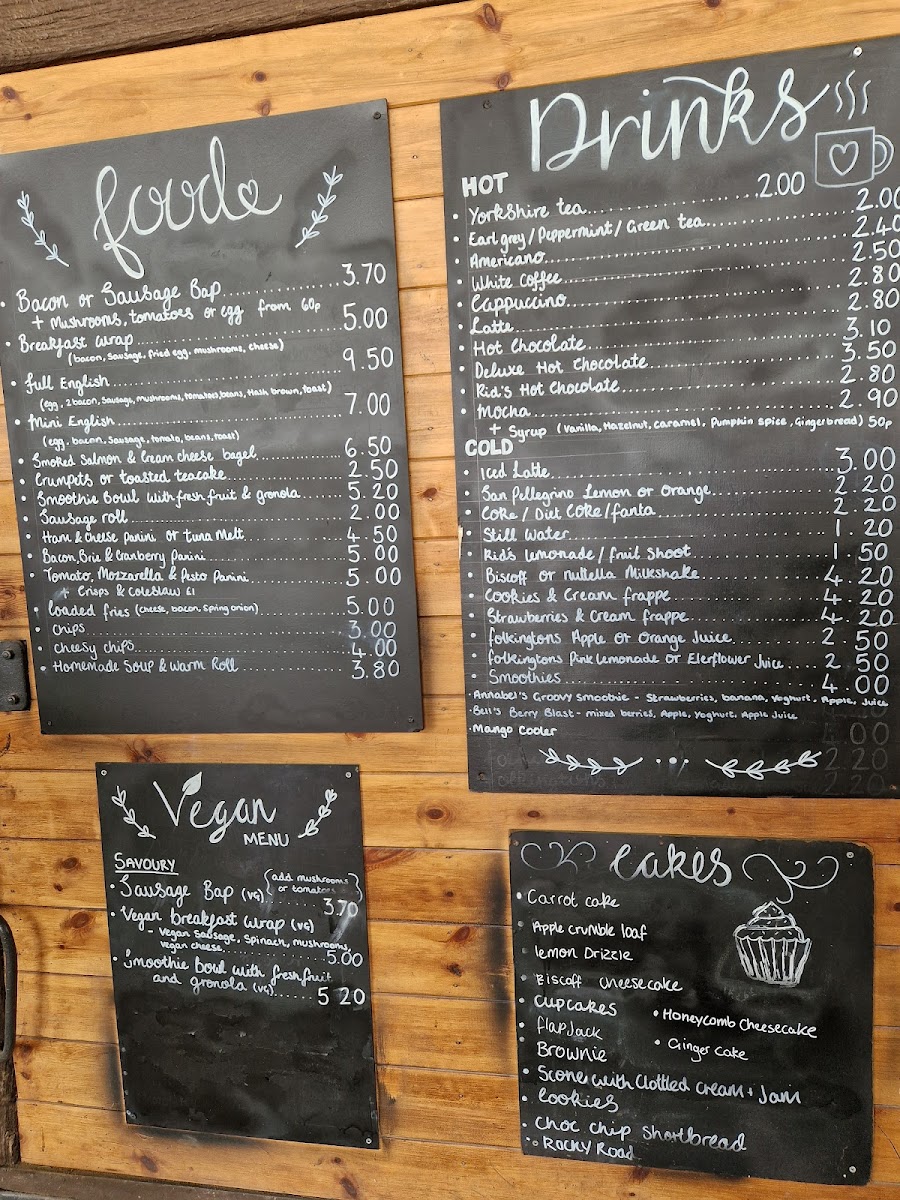 food
Bacon or Sausage Bap 3.70
+ Mushrooms, tomatoes or egg from 60p
Breakfast wrap 5.00
(bacon, sausage, fried egg, mushrooms, cheese)
Full English 9.50
(egg, 2 bacon, sausage, mushrooms, tomatoes, beans, Hash brown, toast)
Mini English 7.00
(egg, bacon, sausage, tomato, beans, toast)
Smoked Salmon & Cream cheese bagel 6.50
Crumpets or toasted teacake 2.50
Smoothie Bowl with fresh fruit & gronola 5.20
Sausage roll 2.00
Ham & Cheese panini or tuna Melt 4.50
Bacon, Brie & Cranberry panini 5.00
Tomato, Mozzarella & Pesto Panini 5.00
+ Crisps & coleslaw £1
Loaded fries (cheese, bacon, spring onion) 5.00
Chips 3.00
cheesy chips 4.00
Homemade Soup & Warm Roll 3.80
Drinks
HOT
Yorkshire tea 2.00
Earl grey / Peppermint / Green tea 2.00
Americano 2.40
White Coffee 2.50
Cappuccino 2.80
Latte 2.80
Hot Chocolate 3.10
Deluxe Hot Chocolate 3.50
Kid's Hot Chocolate 2.80
Mocha 2.90
+ Syrup (Vanilla, Hazelnut, caramel, Pumpkin spice, Gingerbread) 50p
COLD
Iced Latte 3.00
San Pellegrino Lemon or Orange 2.20
Coke / Diet Coke / fanta 2.20
Still Water 1.20
Kid's lemonade / fruit Shoot 1.50
Biscoff or nutella Milkshake 4.20
Cookies & Cream frappe 4.20
Strawberries & Cream frappe 4.20
folkingtons Apple or Orange Juice 2.50
folkingtons Pink Lemonade or Elerflower Juice 2.50
Smoothies 4.00
Annabel's Groovy Smoothie - Strawberries, banana, yoghurt, Apple, Juice
Bell's Berry Blast - mixed berries, Apple, Yoghurt, Apple Juice
Mango Cooler
Vegan
MENU
SAVOURY
Sausage Bap (VG) {add mushrooms or tomatoes} 3.70
Vegan breakfast wrap (VG)
- Vegan Sausage, Spinach, mushrooms,
vegan cheese 5.00
Smoothie Bowl with fresh fruit
and gronola (VG) 5.20
Cakes
Carrot cake
Apple crumble loaf
lemon Drizzle
Biscoff cheesecake
Cupcakes
Honeycomb Cheesecake
flapjack
Ginger cake
Brownie
Scone with Clotted cream + Jam
Cookies
Choc chip shortbread
Rocky Road